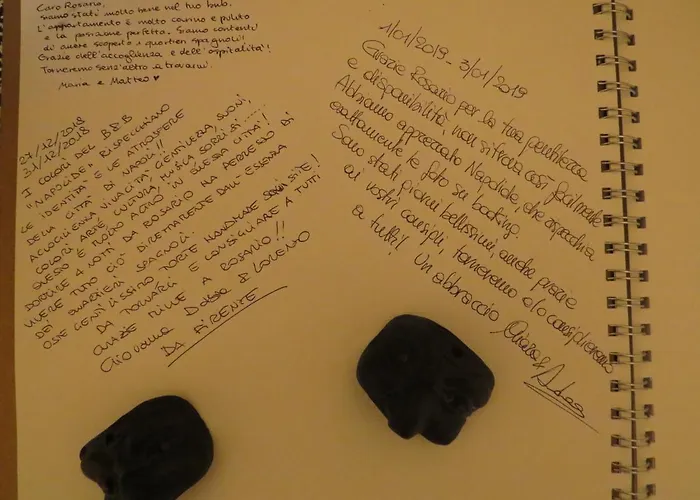 Caro Rosario,
siamo stati molto bene nel tuo bnb.
L'appartamento è molto carino e pulito
e la posizione perfetta. Siamo contenti
di avere scoperto i quartieri spagnoli!
Grazie dell'accoglienza e dell'ospitalità!
Torneremo senz'altro a trovarvi.
Maria e Matteo ♥
27/12/2018
31/12/2018
I COLORI DEL B&B
"NAPOLIDE" RISPECCHIANO
LE IDENTITÀ E LE ATMOSFERE
DELLA CITTÀ DI NAPOLI!!
ACCOGLIENZA, VIVACITÀ, GENTILEZZA, SUONI,
COLORI, ARTE, CULTURA, MUSICA, SORRISI......
QUESTO E MOLTO ALTRO IN QUESTA CITTÀ!
DORMIRE 4 NOTTI DA ROSARIO HA PERMESSO DI
VIVERE TUTTO CIÒ DIRETTAMENTE DALL'ESSENZA
DEI QUARTIERI SPAGNOLI.
OSTE GENTILISSIMO, TORTE HANDMADE SQUISITE!
DA TORNARCI E CONSIGLIARE A TUTTI
GRAZIE MILLE A ROSARIO!!
Giovanna Dassa & LORENZO
DA FIRENZE
1/01/2019 - 3/01/2019
Grazie Rosario per la tua gentilezza
e disponibilità, non si trova così facilmente
Abbiamo apprezzato Napolide, che rispecchia
esattamente le foto su booking.
Sono stati giorni bellissimi, anche grazie
ai vostri consigli, torneremo e lo consiglieremo
a tutti! Un abbraccio Chiara &